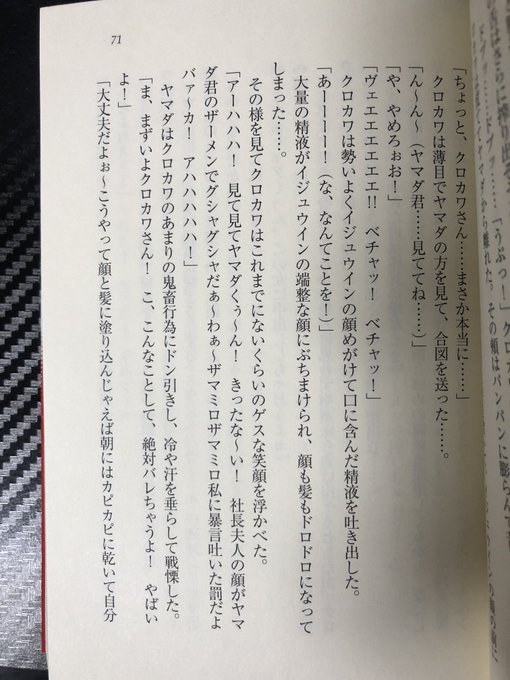 ヤマダから離れた。その頬はパンパンに膨らんで
「ちょっと、クロカワさん……まさか本当に……」
クロカワは薄目でヤマダの方を見て、合図を送った……。
「ん〜ん〜（ヤマダ君……見ててね……）」
「や、やめろぉお！」
「ヴェエエエエエ!!　ベチャッ！　ベチャッ！」
クロカワは勢いよくイジュウインの顔めがけて口に含んだ精液を吐き出した。
「あーーーー！（な、なんてことを！）」
大量の精液がイジュウインの端整な顔にぶちまけられ、顔も髪もドロドロになって
しまった……。
その様を見てクロカワはこれまでにないくらいのゲスな笑顔を浮かべた。
「アーハハハ！　見て見てヤマダくぅ〜ん！　きったな〜い！　社長夫人の顔がヤマ
ダ君のザーメンでグシャグシャだぁ〜わぁ〜ザマミロザマミロ私に暴言吐いた罰だよ
バァ〜カ！　アハハハハハ！」
ヤマダはクロカワのあまりの鬼畜行為にドン引きし、冷や汗を垂らして戦慄した。
「ま、まずいよクロカワさん！　こ、こんなことして、絶対バレちゃうよ！　やばい
よ！」
「大丈夫だよぉ〜こうやって顔と髪に塗り込んじゃえば朝にはカピカピに乾いて自分
71